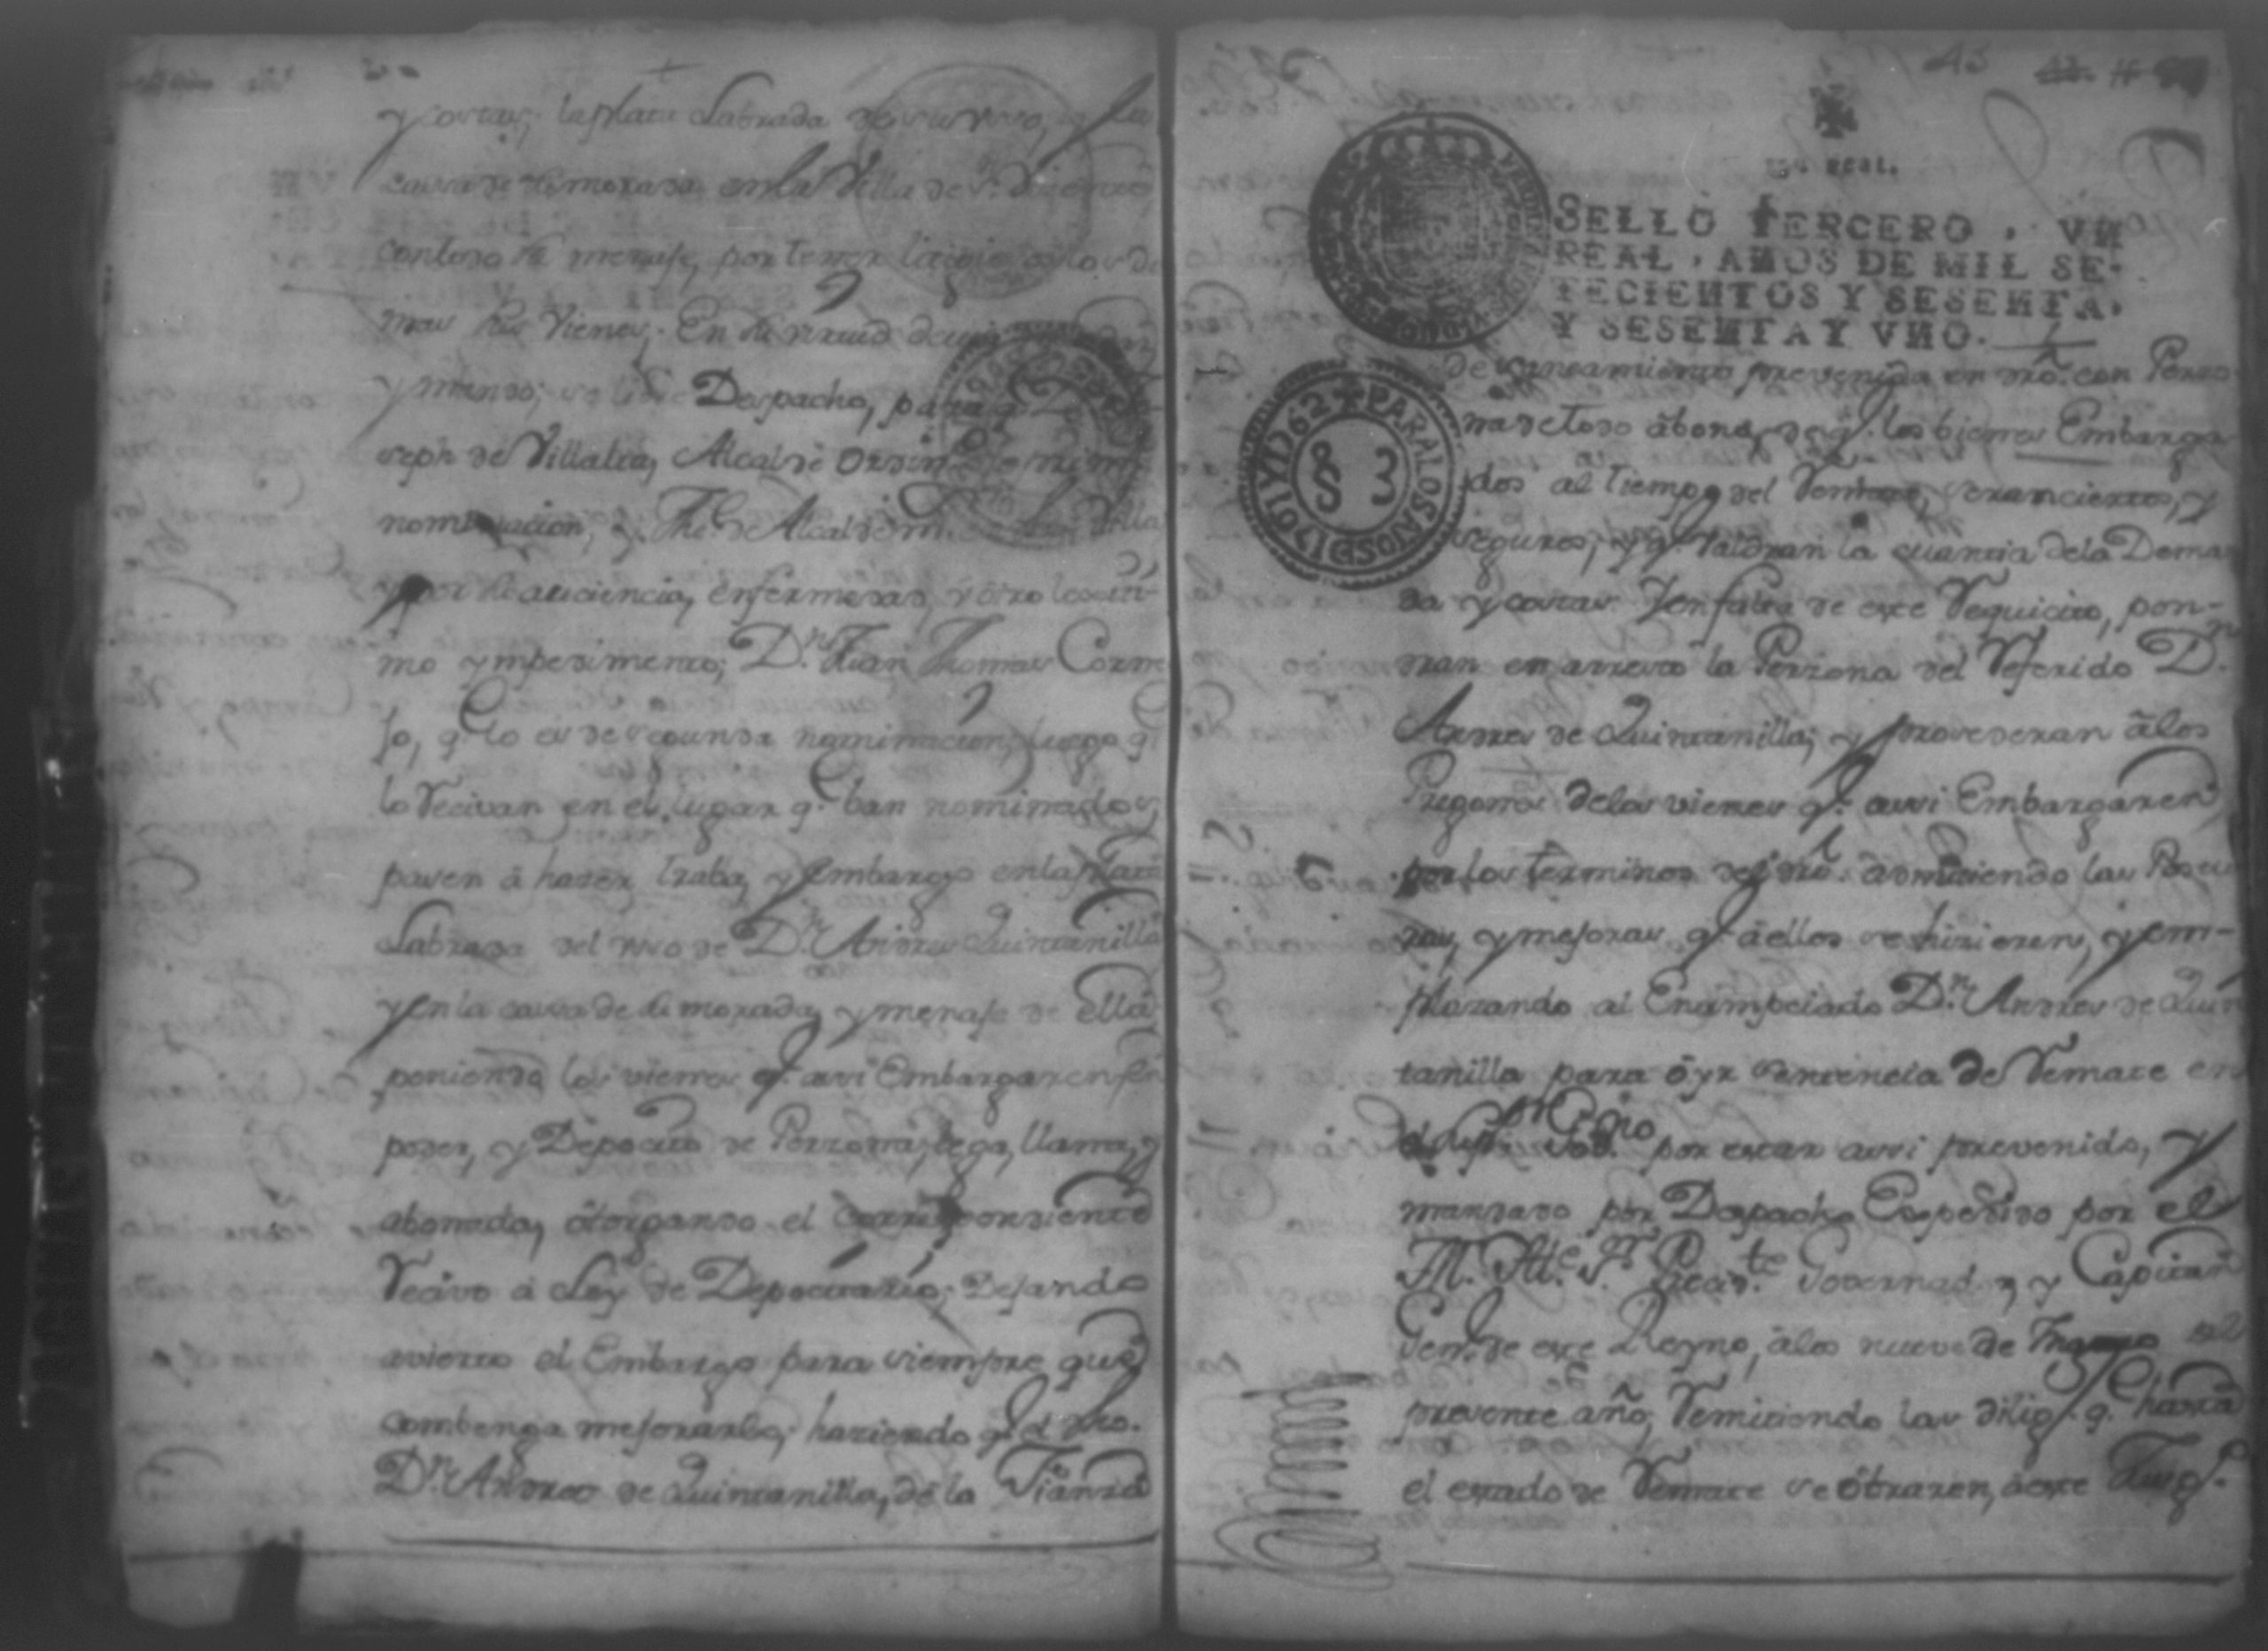 y costas; la plata Labrada de su uso, y la
cassa de su morada en la Villa de Sn. Vicente
con todo su menaje, por tener litigio
mas sus Vienes. En su virtud
y mando, se libre Despacho, para q.
seph de Villalta, Alcalde Ordin
nominacion, y The. de Alcalde m. Villa
y por su ausiencia, enfermedad, ú otro lexiti-
mo ympedimento; Dn. Juan Thomas Corne
jo, q. lo es de segunda nominacion, luego q.
lo Recivan en el lugar q. ban nominados,
pasen á hazer traba, y embargo en la plata
Labrada del uso de Dn. Andres Quintanilla
y en la cassa de su morada, y menaje de ella
poniendo los vienes q. assi Embargaren en
poder, y Depocito de Perzona, lega, llana, y
abonada, ótorgando el correspondiente
Recivo á Ley de Depocitario; Dejando
avierto el Embargo para siempre que
combenga mejorarlo; haziendo q. el dho.
Dn. Andres de Quintanilla, dé la Fianza
43
Vn real.
SELLO TERCERO, VN
REAL, AÑOS DE MIL SE-
TECIENTOS Y SESENTA,
Y SESENTA Y VNO.
PARA LOS AÑOS DE 1761 Y 1762
§ 3
de saneamiento prevenida en dro. con Perzo
na de todo ábono, de q. los bienes Embarga
dos al tiempo del Remate, seran ciertos, y
seguros, y q. Valdran la quantia dela Deman
da y costas. Y en falta de este Requicito, pon-
dran en arresto la Perzona del Referido Dn.
Andres de Quintanilla; y provederan á los
Pregones delos vienes q. assi Embargaren
por los terminos del dro. admitiendo las Postu
ras, y mejoras q. á ellos se hizieren, y em-
plazando al Enampelado Dn. Andres de Quin
tanilla para óyr sentencia de Remate en
el por estar assi prevenido, y
mandado por Despacho Expedido por el
M. Ille. Sr. Precid.te Governad.r y Capitan
Genl. de este Reyno, á los nueve de Marzo del
presente año, Remitiendo las dilig.s q. hasta
el estado de Remate se óbraren, á este Juzg.do